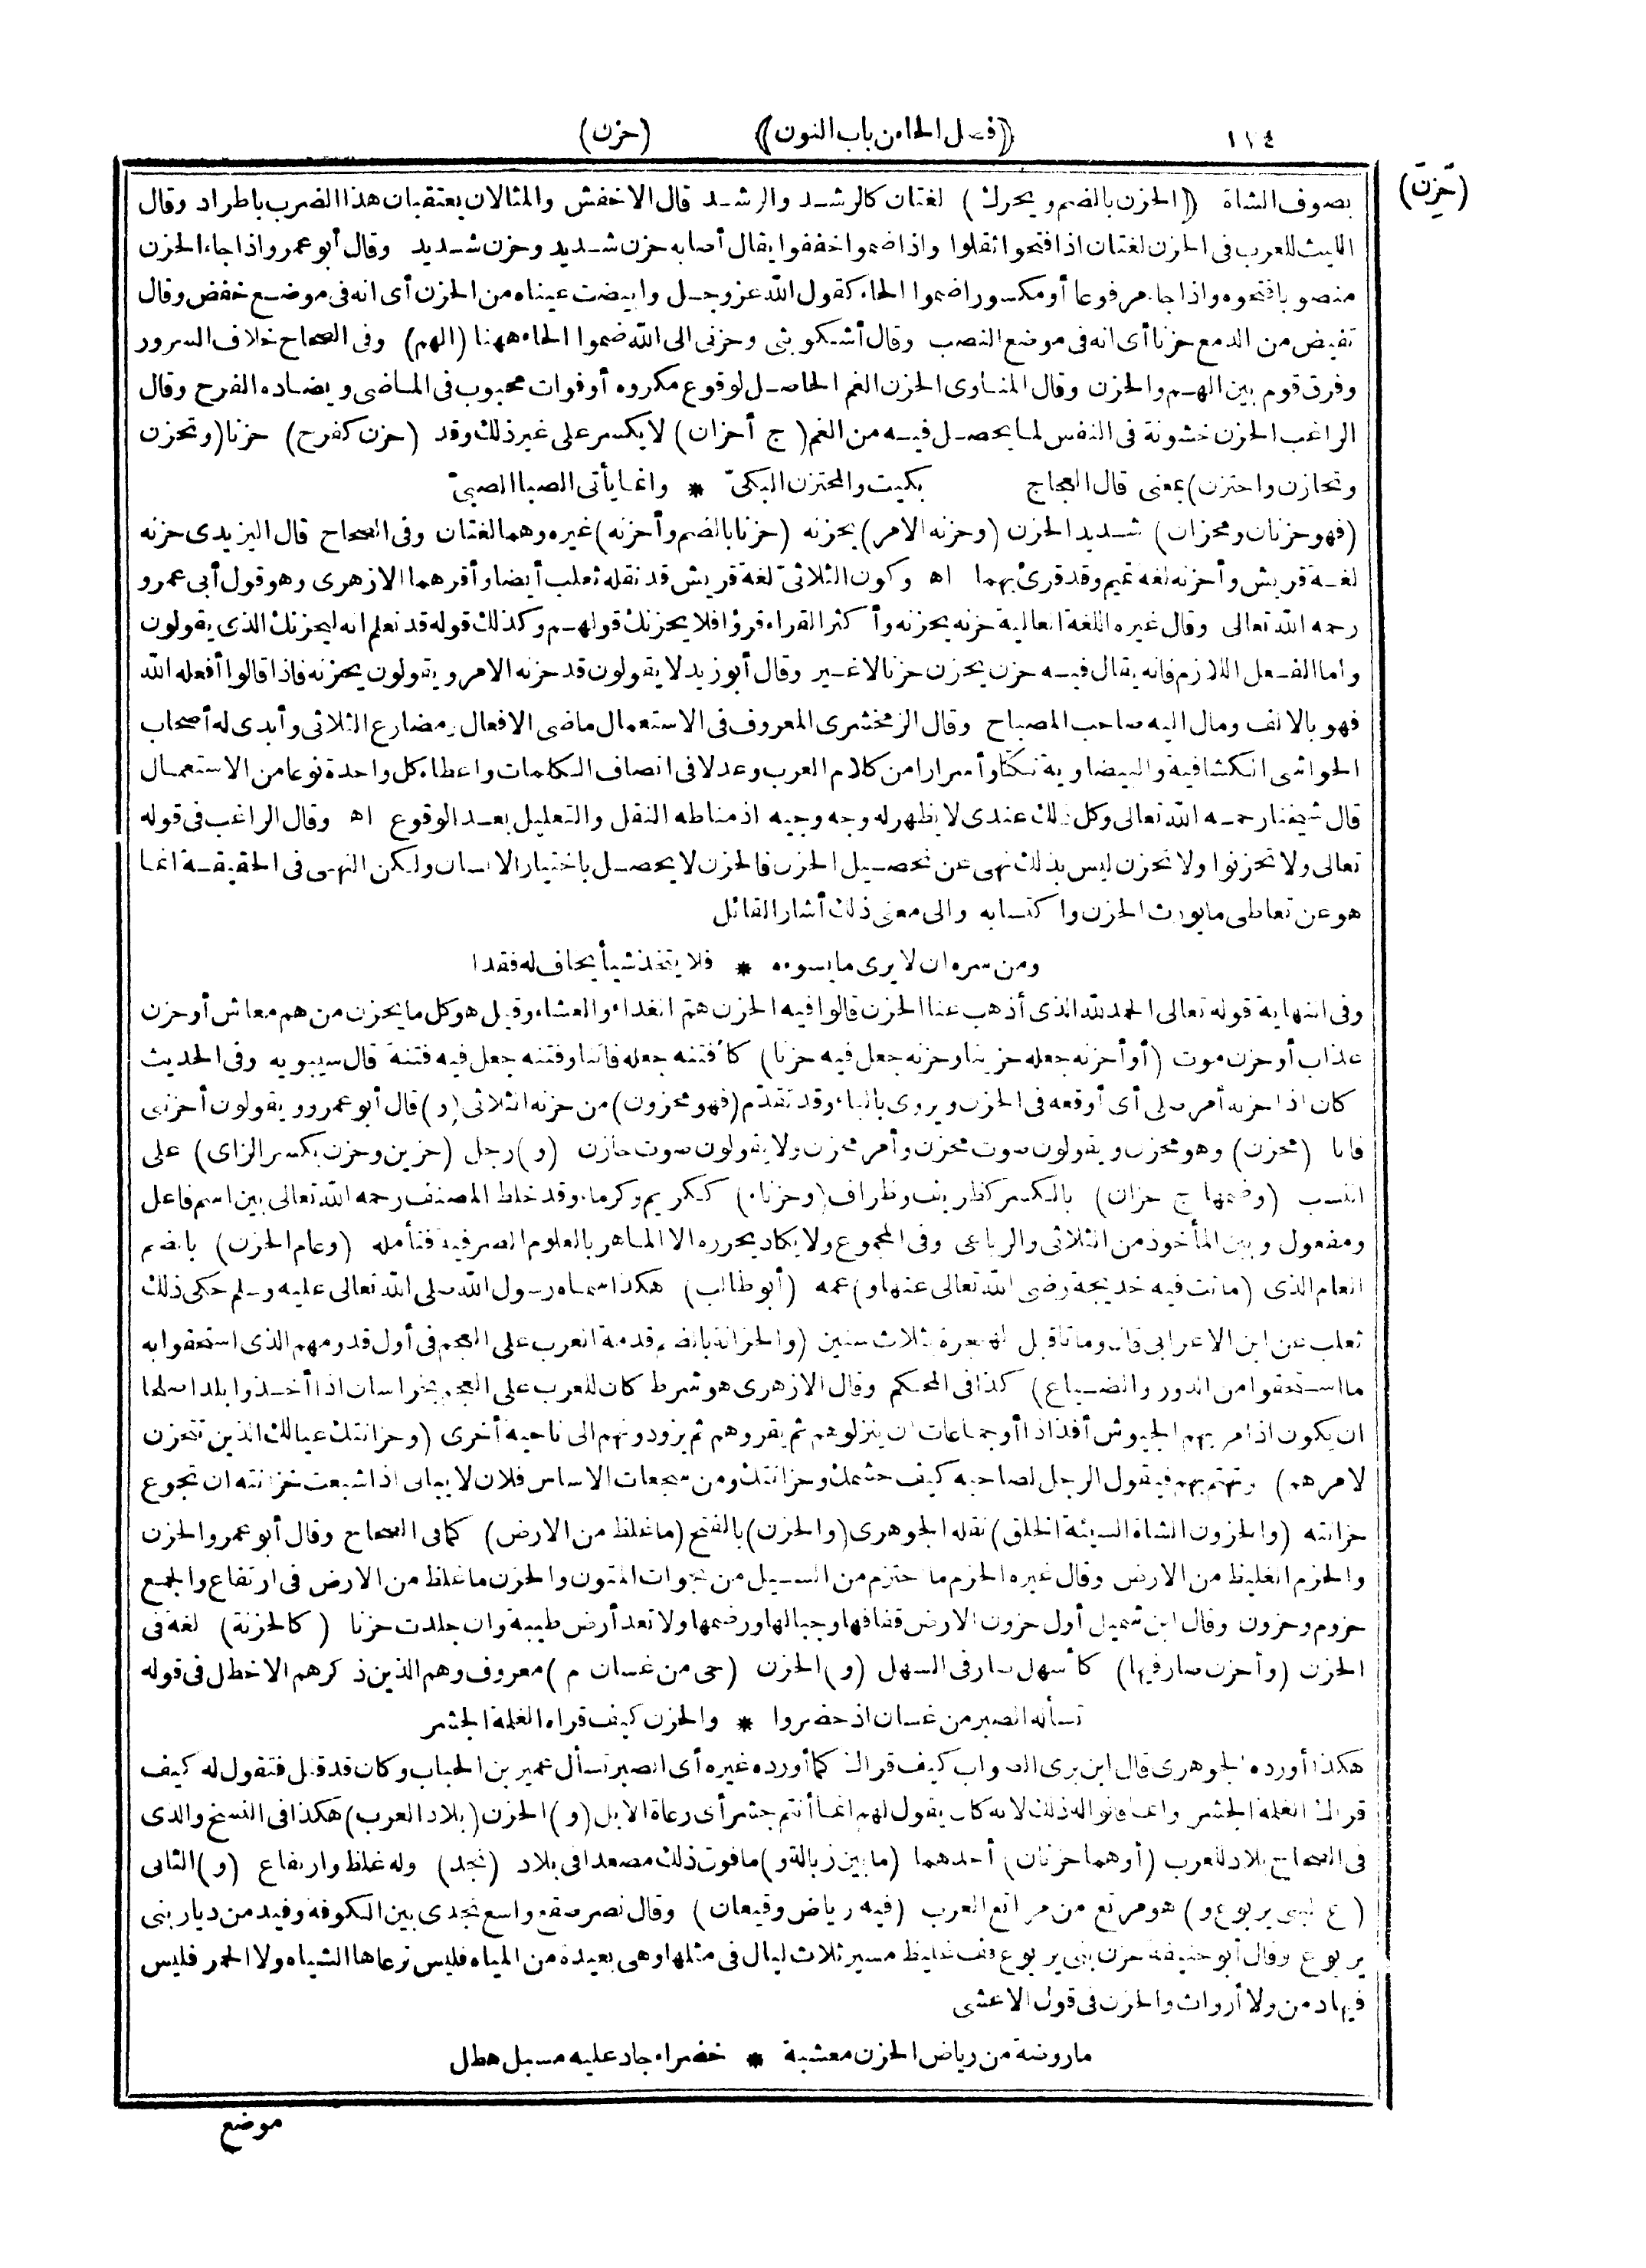 ١٧٤ ((فصل الحاء من باب النون)) (حزن)
(حزن)
بصوف الشاة ((الحزن بالضم ويحرك) لغتان كالرشد والرشد قال الاخفش والمثالان يعتقبان هذا الضرب باطراد وقال
الليث للعرب فى الحزن لغتان اذا فتحوا ثقلوا واذا ضموا خففوا يقال أصابه حزن شديد وحزن شديد وقال أبو عمرو اذا جاء الحزن
منصوبا فتحوه واذا جاء مرفوعا أو مكسورا ضموا الحاء كقول الله عز وجل وابيضت عيناه من الحزن أى انه فى موضع خفض وقال
تفيض من الدمع حزنا أى انه فى موضع النصب وقال أشكو بثى وحزنى الى الله ضموا الحاء ههنا (الهم) وفى الصحاح خلاف السرور
وفرق قوم بين الهم والحزن وقال المناوى الحزن الغم الحاصل لوقوع مكروه أو فوات محبوب فى الماضى ويضاده الفرح وقال
الراغب الحزن خشونة فى النفس لما يحصل فيه من الغم (ج أحزان) لا يكسر على غير ذلك وقد (حزن كفرح) حزنا (وتحزن
وتحازن واحتزن) بمعنى قال العجاج بكيت والمحتزن البكىّ * وانما يأتى الصبا الصبىّ
(فهو حزنان ومحزان) شديد الحزن (وحزنه الامر) يحزنه (حزنا بالضم وأحزنه) غيره وهما لغتان وفى الصحاح قال اليزيدى حزنه
لغة قريش وأحزنه لغة تميم وقد قرئ بهما اه وكون الثلاثىّ لغة قريش قد نقله ثعلب أيضا وأقرهما الازهرى وهو قول أبى عمرو
رحمه الله تعالى وقال غيره اللغة العالية حزنه يحزنه وأكثر القراء قرؤا فلا يحزنك قولهم وكذلك قوله قد نعلم انه ليحزنك الذى يقولون
وأما الفعل اللازم فانه يقال فيه حزن يحزن حزنا لاغير وقال أبو زيد لا يقولون قد حزنه الامر ويقولون يحزنه فاذا قالوا أفعله الله
فهو بالالف ومال اليه صاحب المصباح وقال الزمخشرى المعروف فى الاستعمال ماضى الافعال ومضارع الثلاثى وأبدى له أصحاب
الحواشى الكشافية والبيضاوية نكتا وأسرارا من كلام العرب وعدلا فى انصاف الكلمات واعطاء كل واحدة نوعا من الاستعمال
قال شيخنا رحمه الله تعالى وكل ذلك عندى لا يظهر له وجه وجيه اذ مناطه النقل والتعليل بعد الوقوع اه وقال الراغب فى قوله
تعالى ولا تحزنوا ولا تحزن ليس بذلك نهى عن تحصيل الحزن فالحزن لا يحصل باختيار الانسان ولكن النهى فى الحقيقة انما
هو عن تعاطى ما يورث الحزن واكتسابه والى معنى ذلك أشار القائل
ومن سره ان لا يرى ما يسوءه * فلا يتخذ شيأ يخاف له فقدا
وفى النهاية قوله تعالى الحمد لله الذى أذهب عنا الحزن قالوا فيه الحزن هم الغداء والعشاء وقيل هو كل ما يحزن من هم معاش أو حزن
عذاب أو حزن موت (أو أحزنه جعله حزينا وحزنه جعل فيه حزنا) كأفتنه جعله فاتنا وفتنه جعل فيه فتنة قال سيبويه وفى الحديث
كان اذا حزنه أمر صلى أى أوقعه فى الحزن ويروى بالباء وقد تقدم (فهو محزون) من حزنه الثلاثى (و) قال أبو عمرو ويقولون أحزننى
فانا (محزن) وهو محزن ويقولون صوت محزن وأمر محزن ولا يقولون صوت حازن (و) رجل (حزين وحزن بكسر الزاى) على
النسب (وضمها ج حزان) بالكسر كظريف وظراف (وحزناء) ككريم وكرماء وقد خلط المصنف رحمه الله تعالى بين اسم فاعل
ومفعول وبين المأخوذ من الثلاثى والرباعى وفى الجموع ولا يكاد يحرره الا الماهر بالعلوم الصرفية فتأمله (وعام الحزن) بالضم
العام الذى (ماتت فيه خديجة رضى الله تعالى عنها و) عمه (أبو طالب) هكذا سماه رسول الله صلى الله تعالى عليه وسلم حكى ذلك
ثعلب عن ابن الاعرابى قال وماتا قبل الهجرة بثلاث سنين (والحزانة بالضم قدمة العرب على العجم فى أول قدومهم الذى استحقوا به
ما استحقوا من الدور والضياع) كذا فى المحكم وقال الازهرى هو شرط كان للعرب على العجم بخراسان اذا أخذوا بلدا صلحا
ان يكون اذا مر بهم الجيوش أفذاذا أو جماعات ان ينزلوهم ثم يقروهم ثم يزودونهم الى ناحية أخرى (وحزانتك عيالك الذين تتحزن
لامرهم) وتهتم بهم فيقول الرجل لصاحبه كيف حشمك وحزانتك ومن سجعات الاساس فلان لا يبالى اذا شبعت خزانته ان تجوع
حزانته (والحزون الشاة السيئة الخلق) نقله الجوهرى (والحزن) بالفتح (ما غلظ من الارض) كما فى الصحاح وقال أبو عمرو الحزن
والحزم الغليظ من الارض وقال غيره الحزم ما احتزم من السيل من نجوات المتون والحزن ما غلظ من الارض فى ارتفاع والجمع
حزوم وحزون وقال ابن شميل أول حزون الارض قفافها وجبالها ورضمها ولا تعد أرض طيبة وان جلدت حزنا (كالحزنة) لغة فى
الحزن (وأحزن صار فيها) كأسهل صار فى السهل (و) الحزن (حى من غسان م) معروف وهم الذين ذكرهم الاخطل فى قوله
تسأله الصبر من غسان اذ حضروا * والحزن كيف قراه الغلمة الجشر
هكذا أورده الجوهرى قال ابن برى الصواب كيف قراك كما أورده غيره أى الصبر تسأل عمير بن الحباب وكان قد قتل فتقول له كيف
قراك الغلمة الجشر وانما قالوا له ذلك لانه كان يقول لهم انما أنتم جشر أى رعاة الابل (و) الحزن (بلاد العرب) هكذا فى النسخ والذى
فى الصحاح بلاد للعرب (أو هما حزنان) أحدهما (ما بين زبالة و) ما فوق ذلك مصعدا فى بلاد (نجد) وله غلظ وارتفاع (و) الثانى
(ع لبنى يربوع و) هو مرتع من مراتع العرب (فيه رياض وقيعان) وقال نصر صقع واسع نجدى بين الكوفة وفيد من ديار بنى
يربوع وقال أبو حنيفة حزن بنى يربوع قف غليظ مسير ثلاث ليال فى مثلها وهى بعيدة من المياه فليس ترعاها الشياه ولا الحمر فليس
فيها دمن ولا أرواث والحزن فى قول الاعشى
ما روضة من رياض الحزن معشبة * خضراء جاد عليه مسبل هطل
موضع